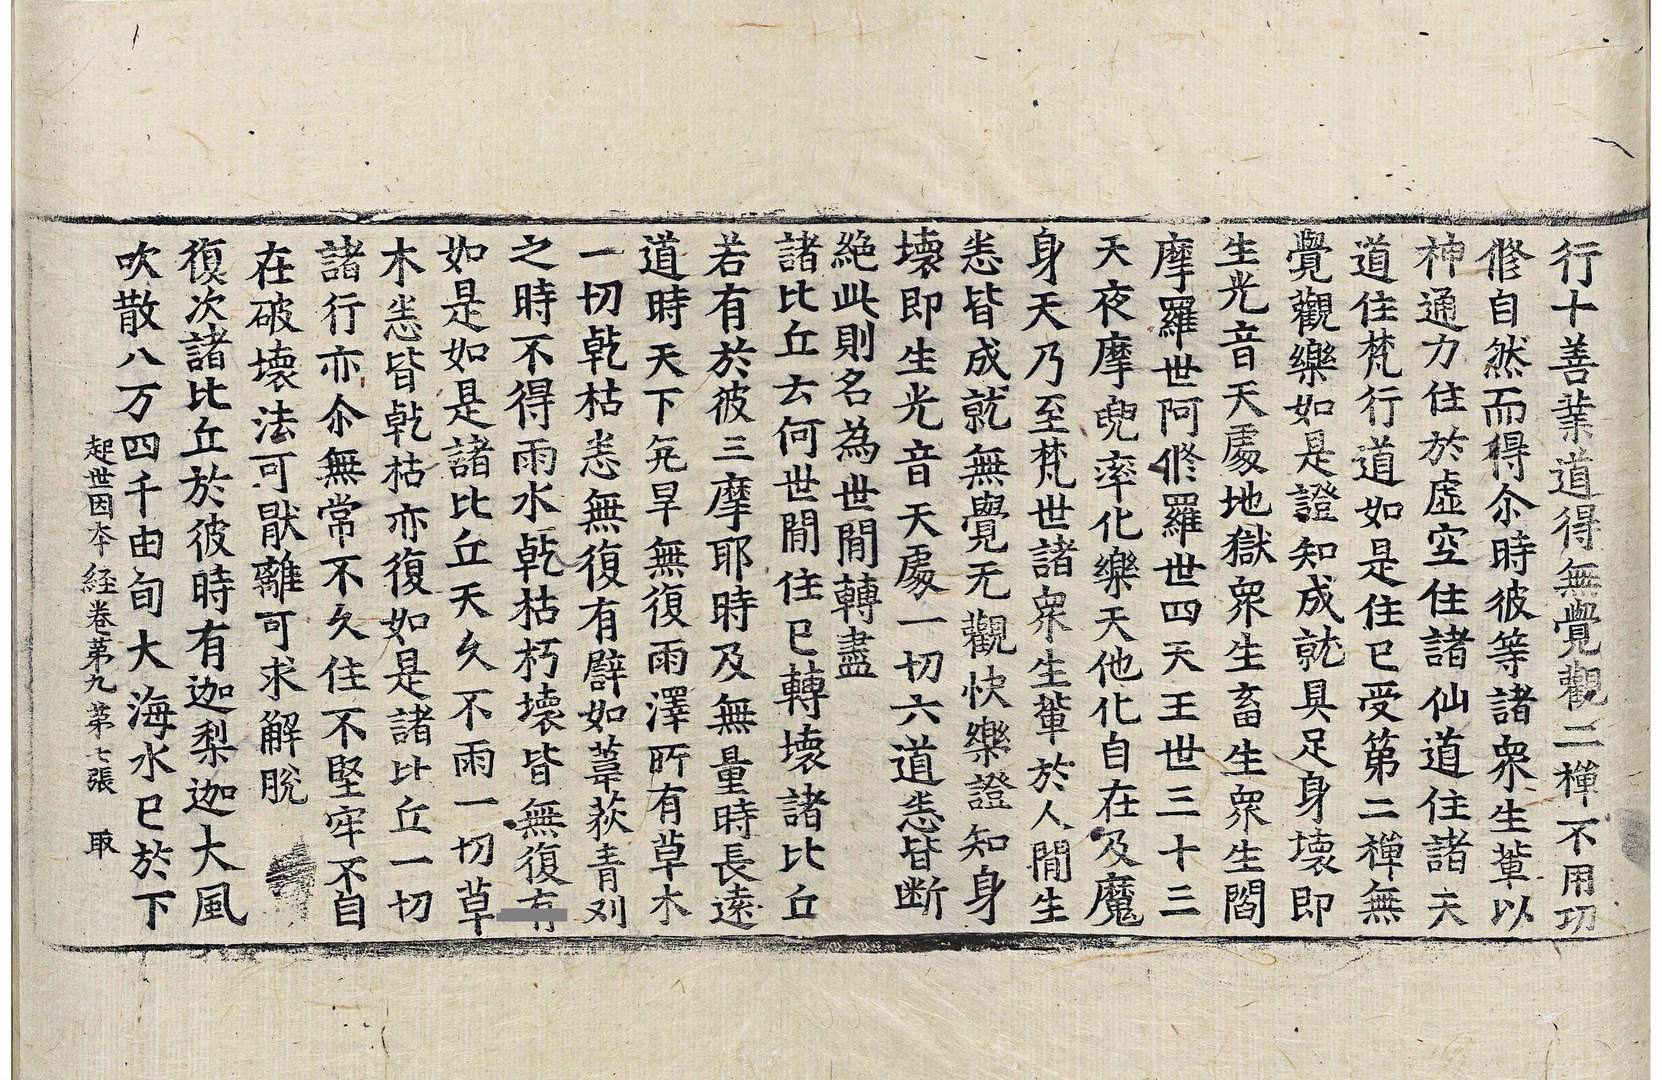 行十善業道得無覺觀二禪不用功
修自然而得尒時彼等諸衆生輩以
神通力住於虛空住諸仙道住諸天
道住梵行道如是住已受第二禪無
覺觀樂如是證知成就具足身壞即
生光音天處地獄衆生畜生衆生閻
摩羅世阿修羅世四天王世三十三
天夜摩兜率化樂天他化自在及魔
身天乃至梵世諸衆生輩於人閒生
悉皆成就無覺无觀快樂證知身
壞即生光音天處一切六道悉皆断
絶此則名為世閒轉盡
諸比丘云何世閒住已轉壞諸比丘
若有於彼三摩耶時及無量時長遠
道時天下亢旱無復雨澤所有草木
一切乹枯悉無復有譬如葦荻青刈
之時不得雨水乹枯朽壞皆無復有
如是如是諸比丘天久不雨一切草
木悉皆乹枯亦復如是諸比丘一切
諸行亦尒無常不久住不堅牢不自
在破壞法可猒離可求解脫
復次諸比丘於彼時有迦梨迦大風
吹散八万四千由旬大海水已於下
起世因本経卷第九 第七張 取